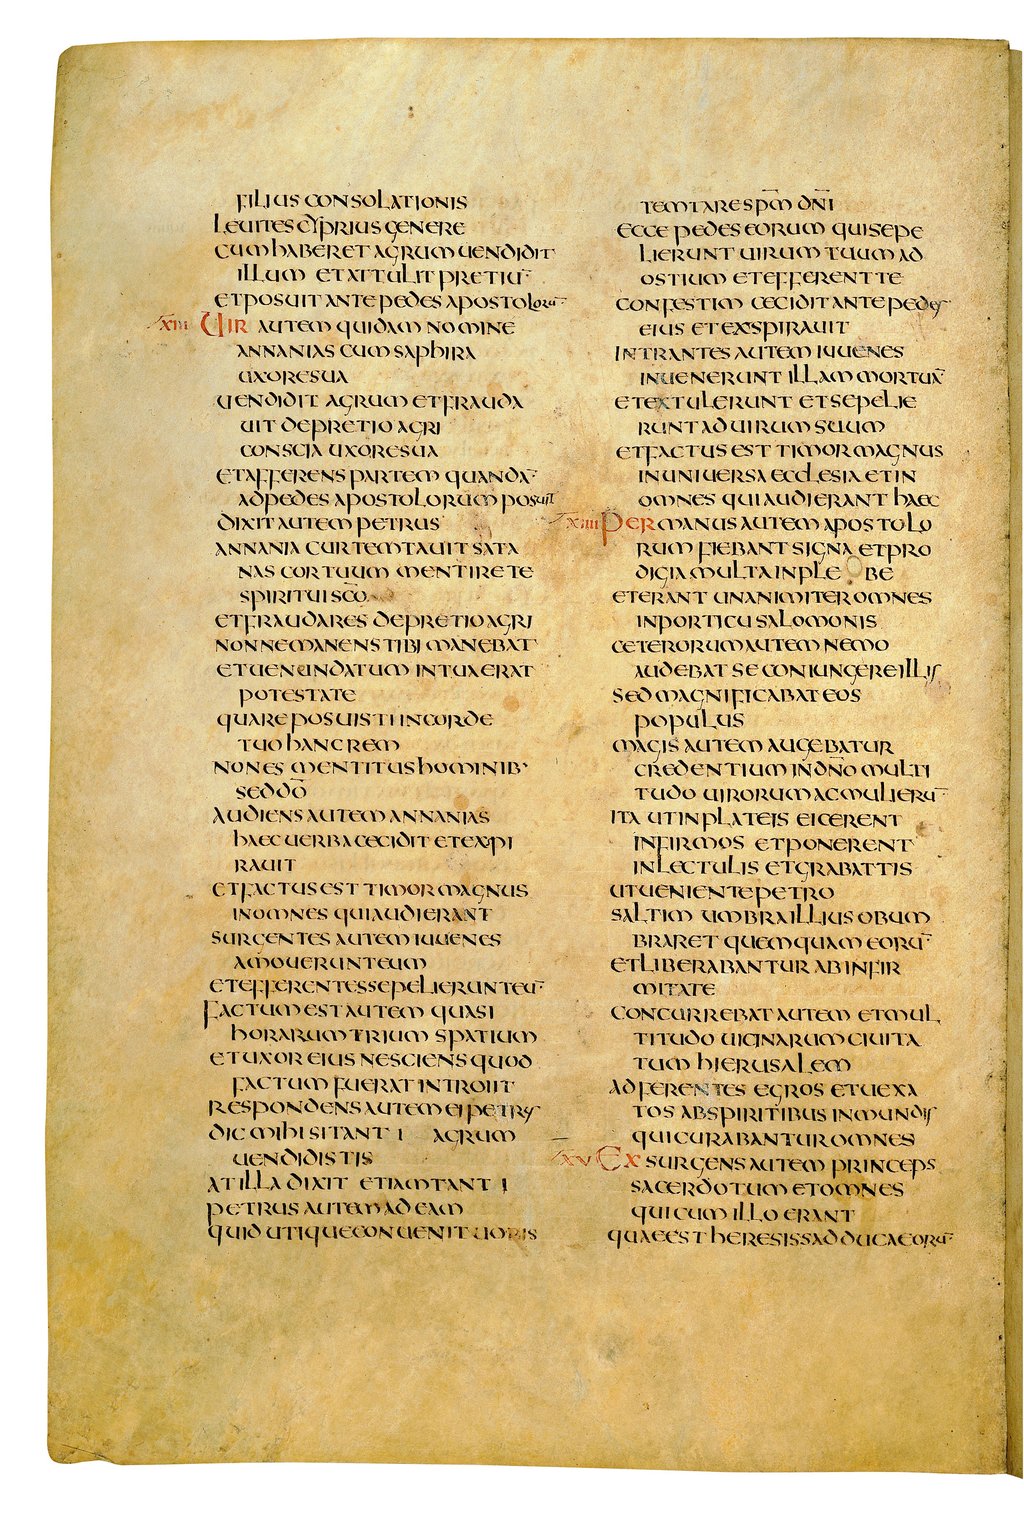 FILIUS CONSOLATIONIS
LEUITES CYPRIUS GENERE
CUM HABERET AGRUM UENDIDIT
ILLUM ET ATTULIT PRETIU̅
ET POSUIT ANTE PEDES APOSTOLORU̅
XIII UIR AUTEM QUIDAM NOMINE
ANNANIAS CUM SAPHIRA
UXORE SUA
UENDIDIT AGRUM ET FRAUDA
UIT DE PRETIO AGRI
CONSCIA UXORE SUA
ET AFFERENS PARTEM QUANDA̅
AD PEDES APOSTOLORUM POSUIT
DIXIT AUTEM PETRUS
ANNANIA CUR TEMTAUIT SATA
NAS COR TUUM MENTIRE TE
SPIRITUI SC̅O
ET FRAUDARES DE PRETIO AGRI
NONNE MANENS TIBI MANEBAT
ET UENUNDATUM IN TUA ERAT
POTESTATE
QUARE POSUISTI IN CORDE
TUO HANC REM
NON ES MENTITUS HOMINIB·
SED D̅O̅
AUDIENS AUTEM ANNANIAS
HAEC UERBA CECIDIT ET EXPI
RAUIT
ET FACTUS EST TIMOR MAGNUS
IN OMNES QUI AUDIERANT
SURGENTES AUTEM IUUENES
AMOUERUNT EUM
ET EFFERENTES SEPELIERUNT EU̅
FACTUM EST AUTEM QUASI
HORARUM TRIUM SPATIUM
ET UXOR EIUS NESCIENS QUOD
FACTUM FUERAT INTROIIT
RESPONDENS AUTEM EI PETRUS
DIC MIHI SI TANTI AGRUM
UENDIDISTIS
AT ILLA DIXIT ETIAM TANTI
PETRUS AUTEM AD EAM
QUID UTIQUE CONUENIT UOBIS
TEMTARE SP̅M̅ DN̅I
ECCE PEDES EORUM QUI SEPE
LIERUNT UIRUM TUUM AD
OSTIUM ET EFFERENT TE
CONFESTIM CECIDIT ANTE PEDES
EIUS ET EXSPIRAUIT
INTRANTES AUTEM IUUENES
INUENERUNT ILLAM MORTUA̅
ET EXTULERUNT ET SEPELIE
RUNT AD UIRUM SUUM
ET FACTUS EST TIMOR MAGNUS
IN UNIUERSA ECCLESIA ET IN
OMNES QUI AUDIERANT HAEC
XIIII PER MANUS AUTEM APOSTOLO
RUM FIEBANT SIGNA ET PRO
DIGIA MULTA IN PLE BE
ET ERANT UNANIMITER OMNES
IN PORTICU SALOMONIS
CETERORUM AUTEM NEMO
AUDEBAT SE CONIUNGERE ILLIS
SED MAGNIFICABAT EOS
POPULUS
MAGIS AUTEM AUGEBATUR
CREDENTIUM IN DN̅O MULTI
TUDO UIRORUM AC MULIERU̅
ITA UT IN PLATEIS EICERENT
INFIRMOS ET PONERENT
IN LECTULIS ET GRABATTIS
UT UENIENTE PETRO
SALTIM UMBRA ILLIUS OBUM
BRARET QUEMQUAM EORU̅
ET LIBERABANTUR AB INFIR
MITATE
CONCURREBAT AUTEM ET MUL
TITUDO UICINARUM CIUITA
TUM HIERUSALEM
ADFERENTES EGROS ET UEXA
TOS AB SPIRITIBUS INMUNDIS
QUI CURABANTUR OMNES
XV EXSURGENS AUTEM PRINCEPS
SACERDOTUM ET OMNES
QUI CUM ILLO ERANT
QUAE EST HERESIS SADDUCAEORU̅